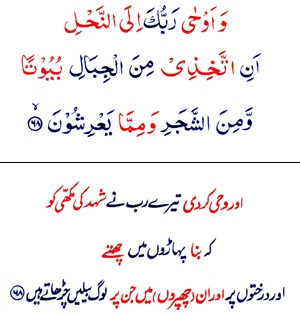 وَ اَوْحٰی رَبُّكَ اِلَی النَّحْلِ
اَنِ اتَّخِذِیْ مِنَ الْجِبَالِ بُیُوْتًا
وَّ مِنَ الشَّجَرِ وَ مِمَّا یَعْرِشُوْنَ ۙ﴿۶۸﴾
اور وحی کردی تیرے رب نے شہد کی مکھی کو
کہ بنا پہاڑوں میں چھتے
اور درختوں پر اور ان (چھپروں) میں جن پر لوگ بیلیں چڑھاتے ہیں ﴿۶۸﴾